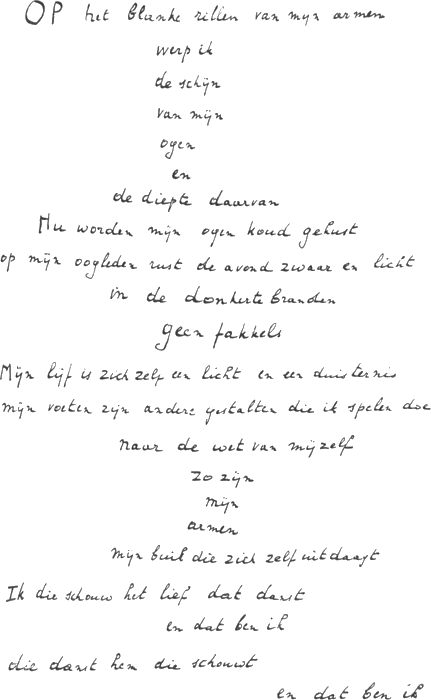 OP het blanke rillen van mijn armen
werp ik
de schijn
van mijn
ogen
en
de diepte daarvan
Nu worden mijn ogen koud gekust
op mijn oogleden rust de avond zwaar en licht
in de donkerte branden
geen fakkels
Mijn lijf is zich zelf een licht en een duisternis
mijn voeten zijn andere gestalten die ik spelen doe
naar de wet van mijzelf
zo zijn
mijn
armen
mijn buik die zich zelf uitdaagt
Ik die schouw het lief dat danst
en dat ben ik
die danst hem die schouwt
en dat ben ik